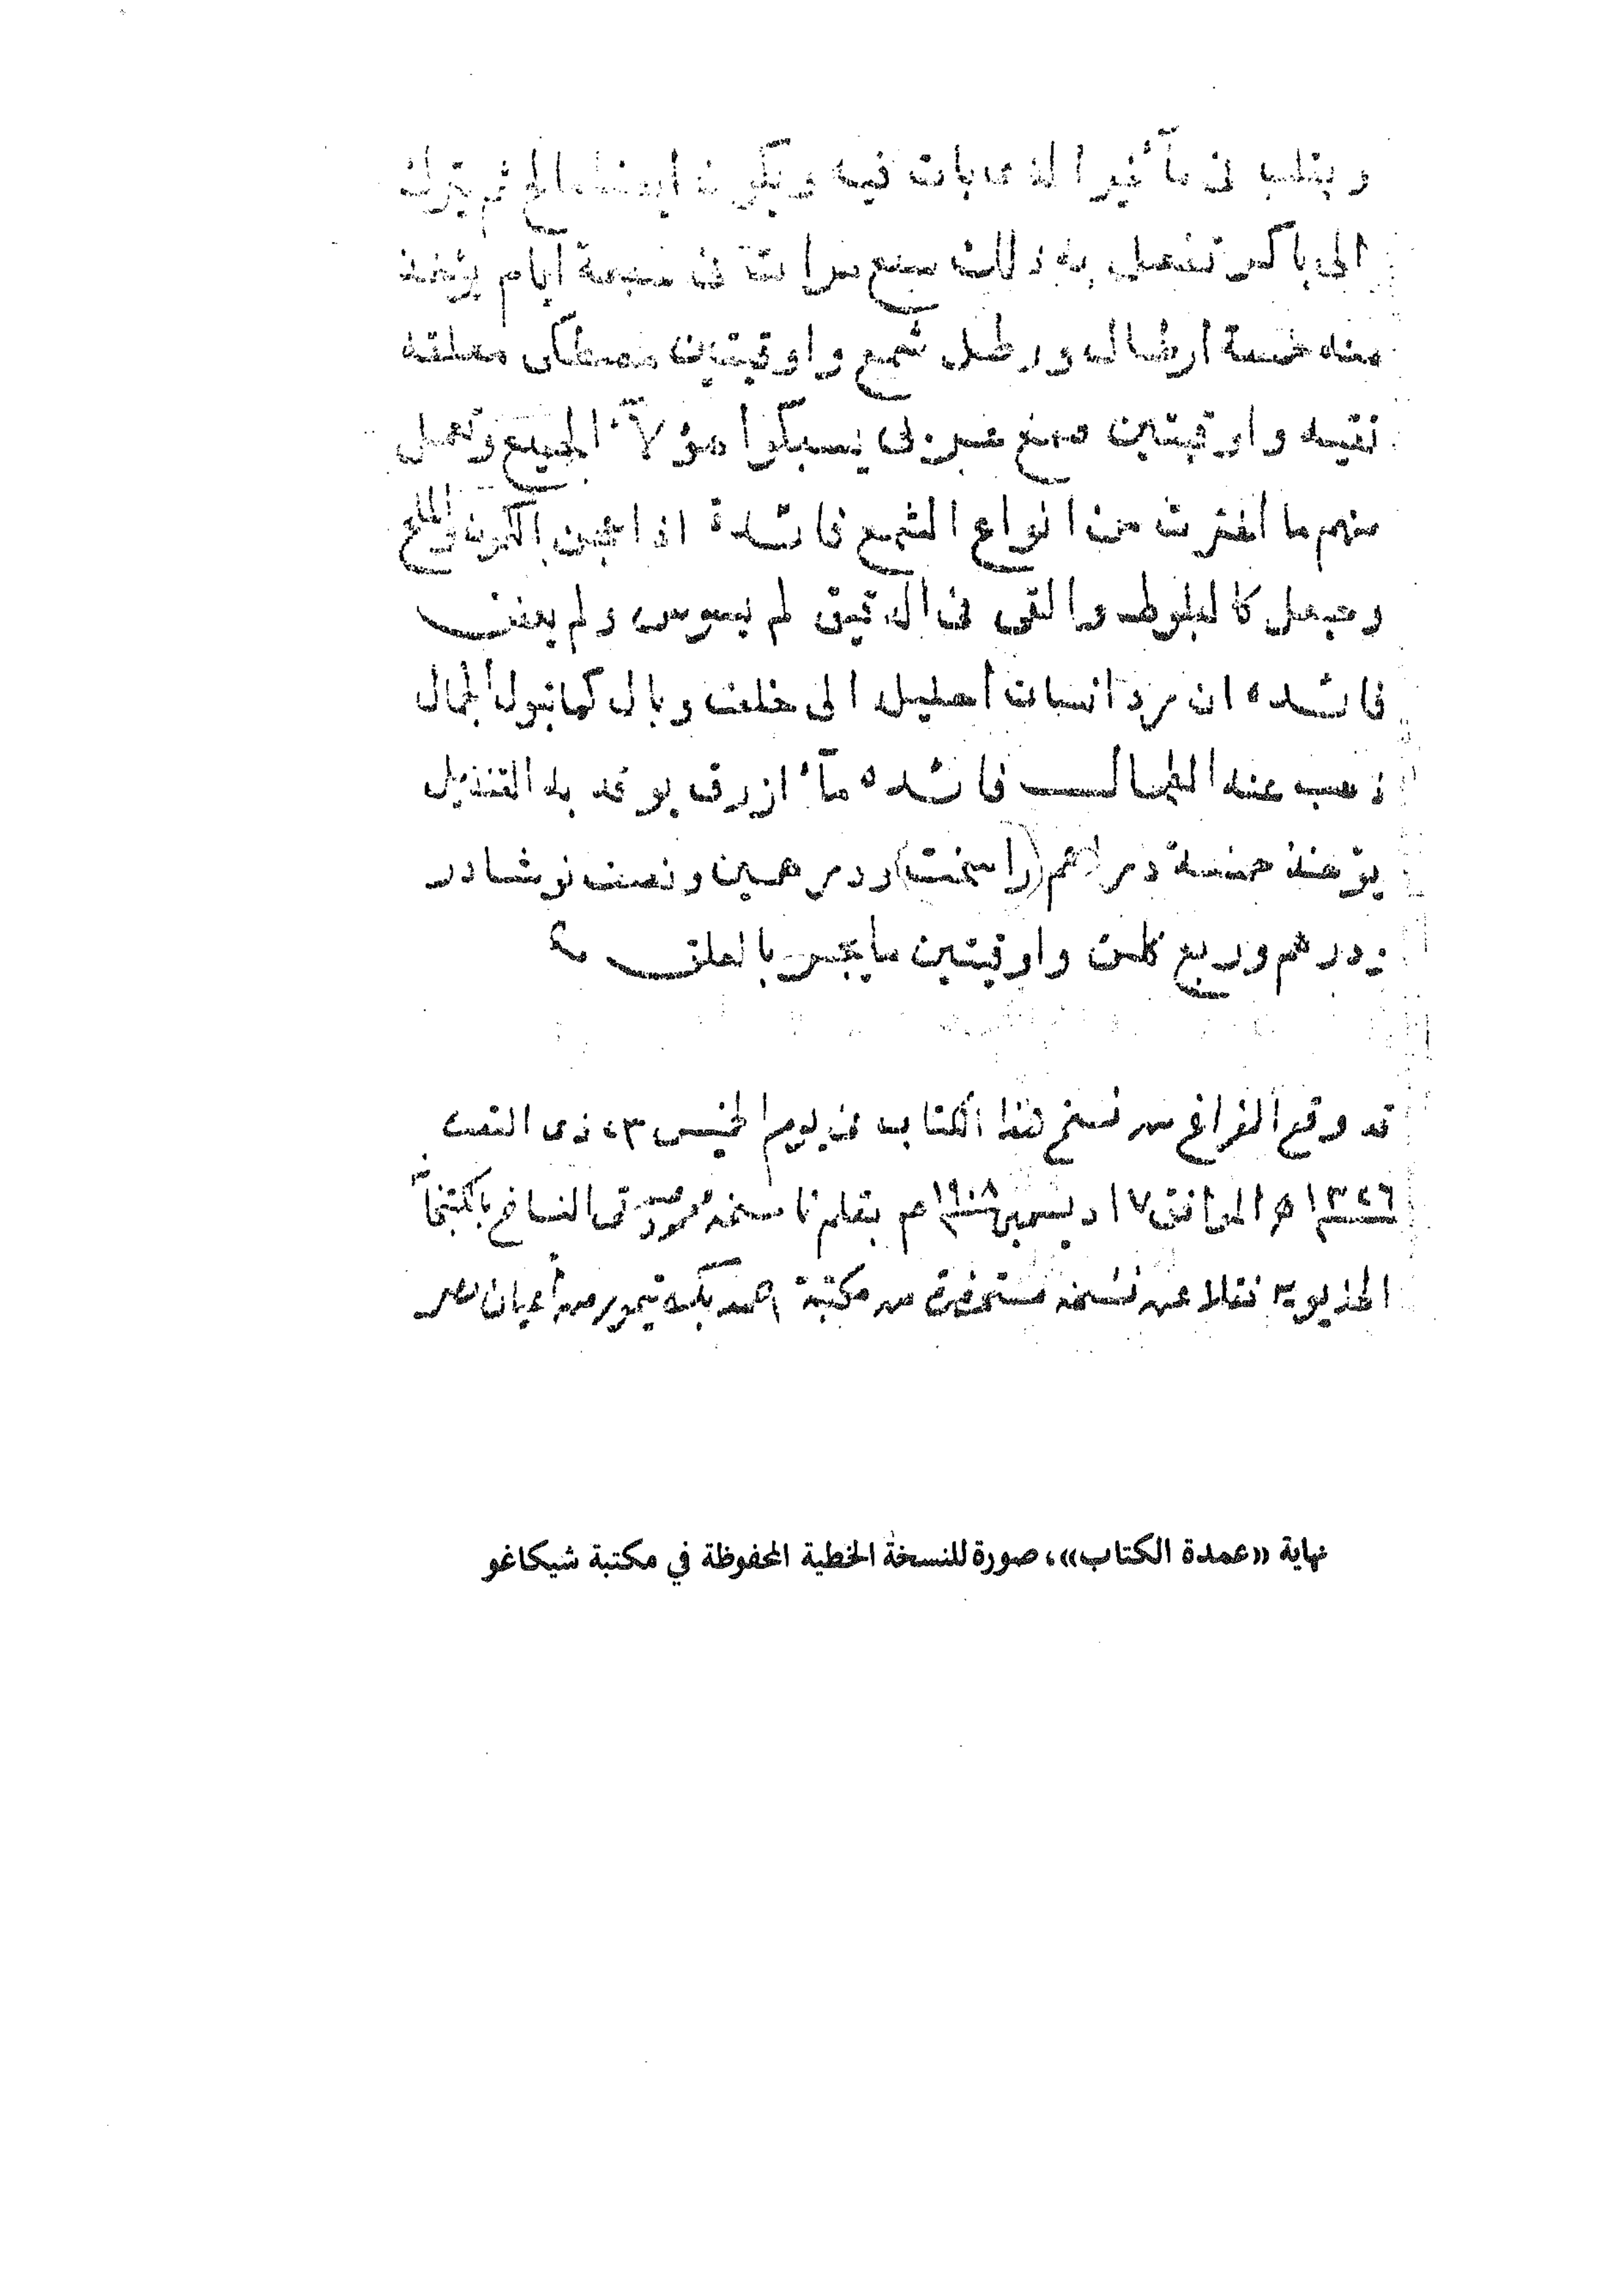 ويقلب في مآء غير الذي بات فيه ويكون ايضا مالح ثم يترك
الى باكر تفعل به ذلك سبع مرات في سبعة أيام يؤخذ
منه خمسة ارطال ورطل شمع واوقيتين مصطكى معلقه
نقيه واوقيتين صمغ عربى يسبكوا هؤلآء الجميع وتعمل
منهم ما اخترت من انواع الشمع فائدة اذا عجن الكمون والملح
وجعل كالبلوط والقى في الدقيق لم يسوس ولم يعفن
فائده ان مرد انسان احليله الى خلف وبال كما تبول الجمال
ذهب عنه الطحال فائده مآء ازرق يوقد به القنديل
يؤخذ خمسة دراهم (راسخت) ودرهمين ونصف نوشادر
ودرهم وربع كلس واوقيتين ما يجر بالعلق
قد وقع الفراغ من نسخ هذا الكتاب في يوم الخميس ٢٣ ذى القعدة
١٣٢٦ ه الموافق ١٧ ديسمبر ١٩٠٨ م بقلم ناسخه محمود صدقى النساخ بالكتبخانة
الخديوية نقلا عن نسخة مستحضرة من مكتبة احمد بك تيمور من أعيان مصر
نهاية «عمدة الكتاب»، صورة للنسخة الخطية المحفوظة في مكتبة شيكاغو